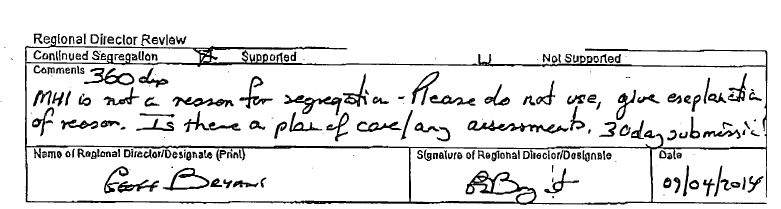 Regional Director Review
Continued Segregation Supported Not Supported
Comments 360 days
MHI is not a reason for segregation - Please do not use, give explanation
of reason. Is there a plan of care/any assessments. 30 day submission
Name of Regional Director/Designate (Print) Signature of Regional Director/Designate Date
Geoff Bryans 09/04/2014